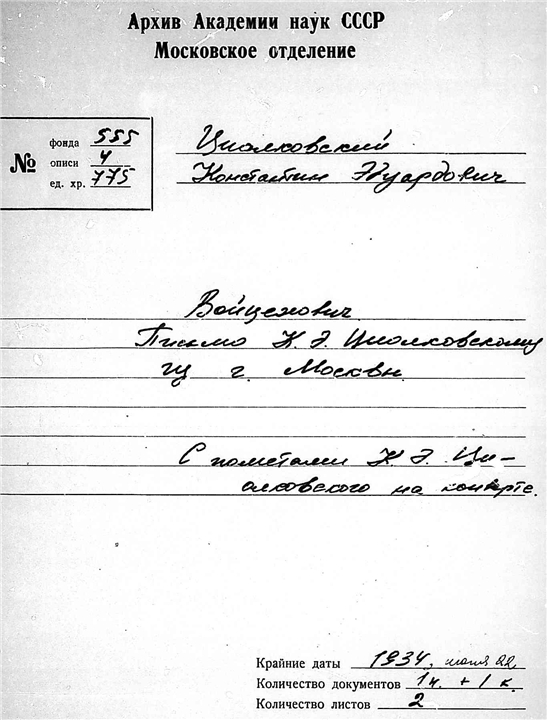 Архив Академии наук СССР
Московское отделение
№
фонда 555
описи 4
ед. хр. 775
Циолковский
Константин Эдуардович
Войцехович
Письмо К. Э. Циолковскому
из г. Москвы
С пометами К. Э. Ци-
олковского на конверте.
Крайние даты 1934, 22
Количество документов 1 + 1 к.
Количество листов 2